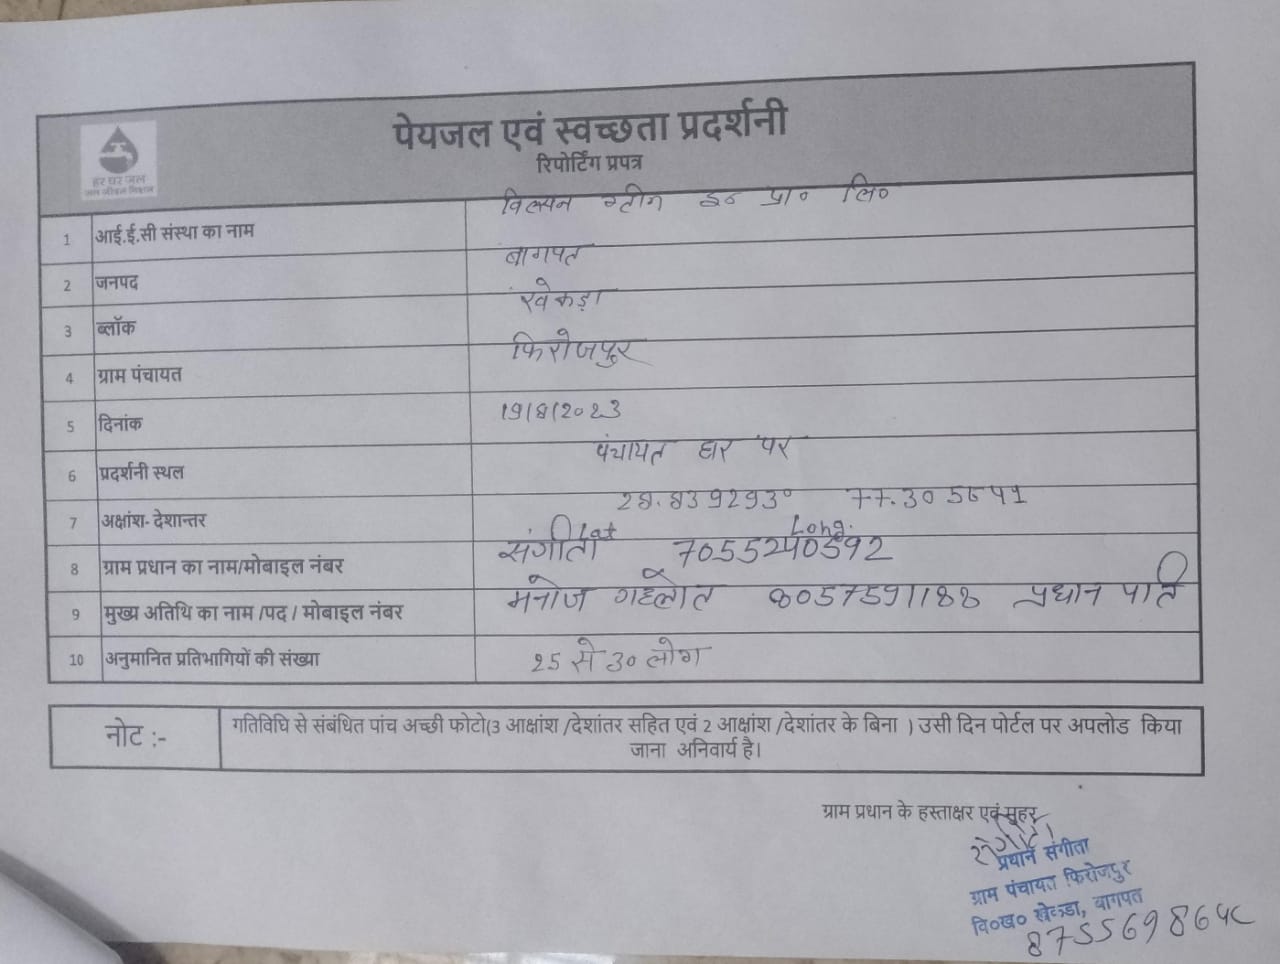 पेयजल एवं स्वच्छता प्रदर्शनी
रिपोर्टिंग प्रपत्र
हर घर जल
जल जीवन मिशन
1 आई.ई.सी संस्था का नाम विल्सन ग्रीन इ० प्रा० लि०
2 जनपद बागपत
3 ब्लॉक खेकड़ा
4 ग्राम पंचायत फिरोजपुर
5 दिनांक 19/8/2023
6 प्रदर्शनी स्थल पंचायत घर पर
7 अक्षांश- देशान्तर 28.839293° 77.305641
Lat Long.
8 ग्राम प्रधान का नाम/मोबाइल नंबर संगीता 7055240592
9 मुख्य अतिथि का नाम /पद / मोबाइल नंबर मनोज गहलोत 8057591188 प्रधान पति
10 अनुमानित प्रतिभागियों की संख्या 25 से 30 लोग
नोट :- गतिविधि से संबंधित पांच अच्छी फोटो(3 आक्षांश /देशांतर सहित एवं 2 आक्षांश /देशांतर के बिना ) उसी दिन पोर्टल पर अपलोड किया
जाना अनिवार्य है।
ग्राम प्रधान के हस्ताक्षर एवं मुहर
संगीता
प्रधान संगीता
ग्राम पंचायत फिरोजपुर
वि०ख० खेकडा, बागपत